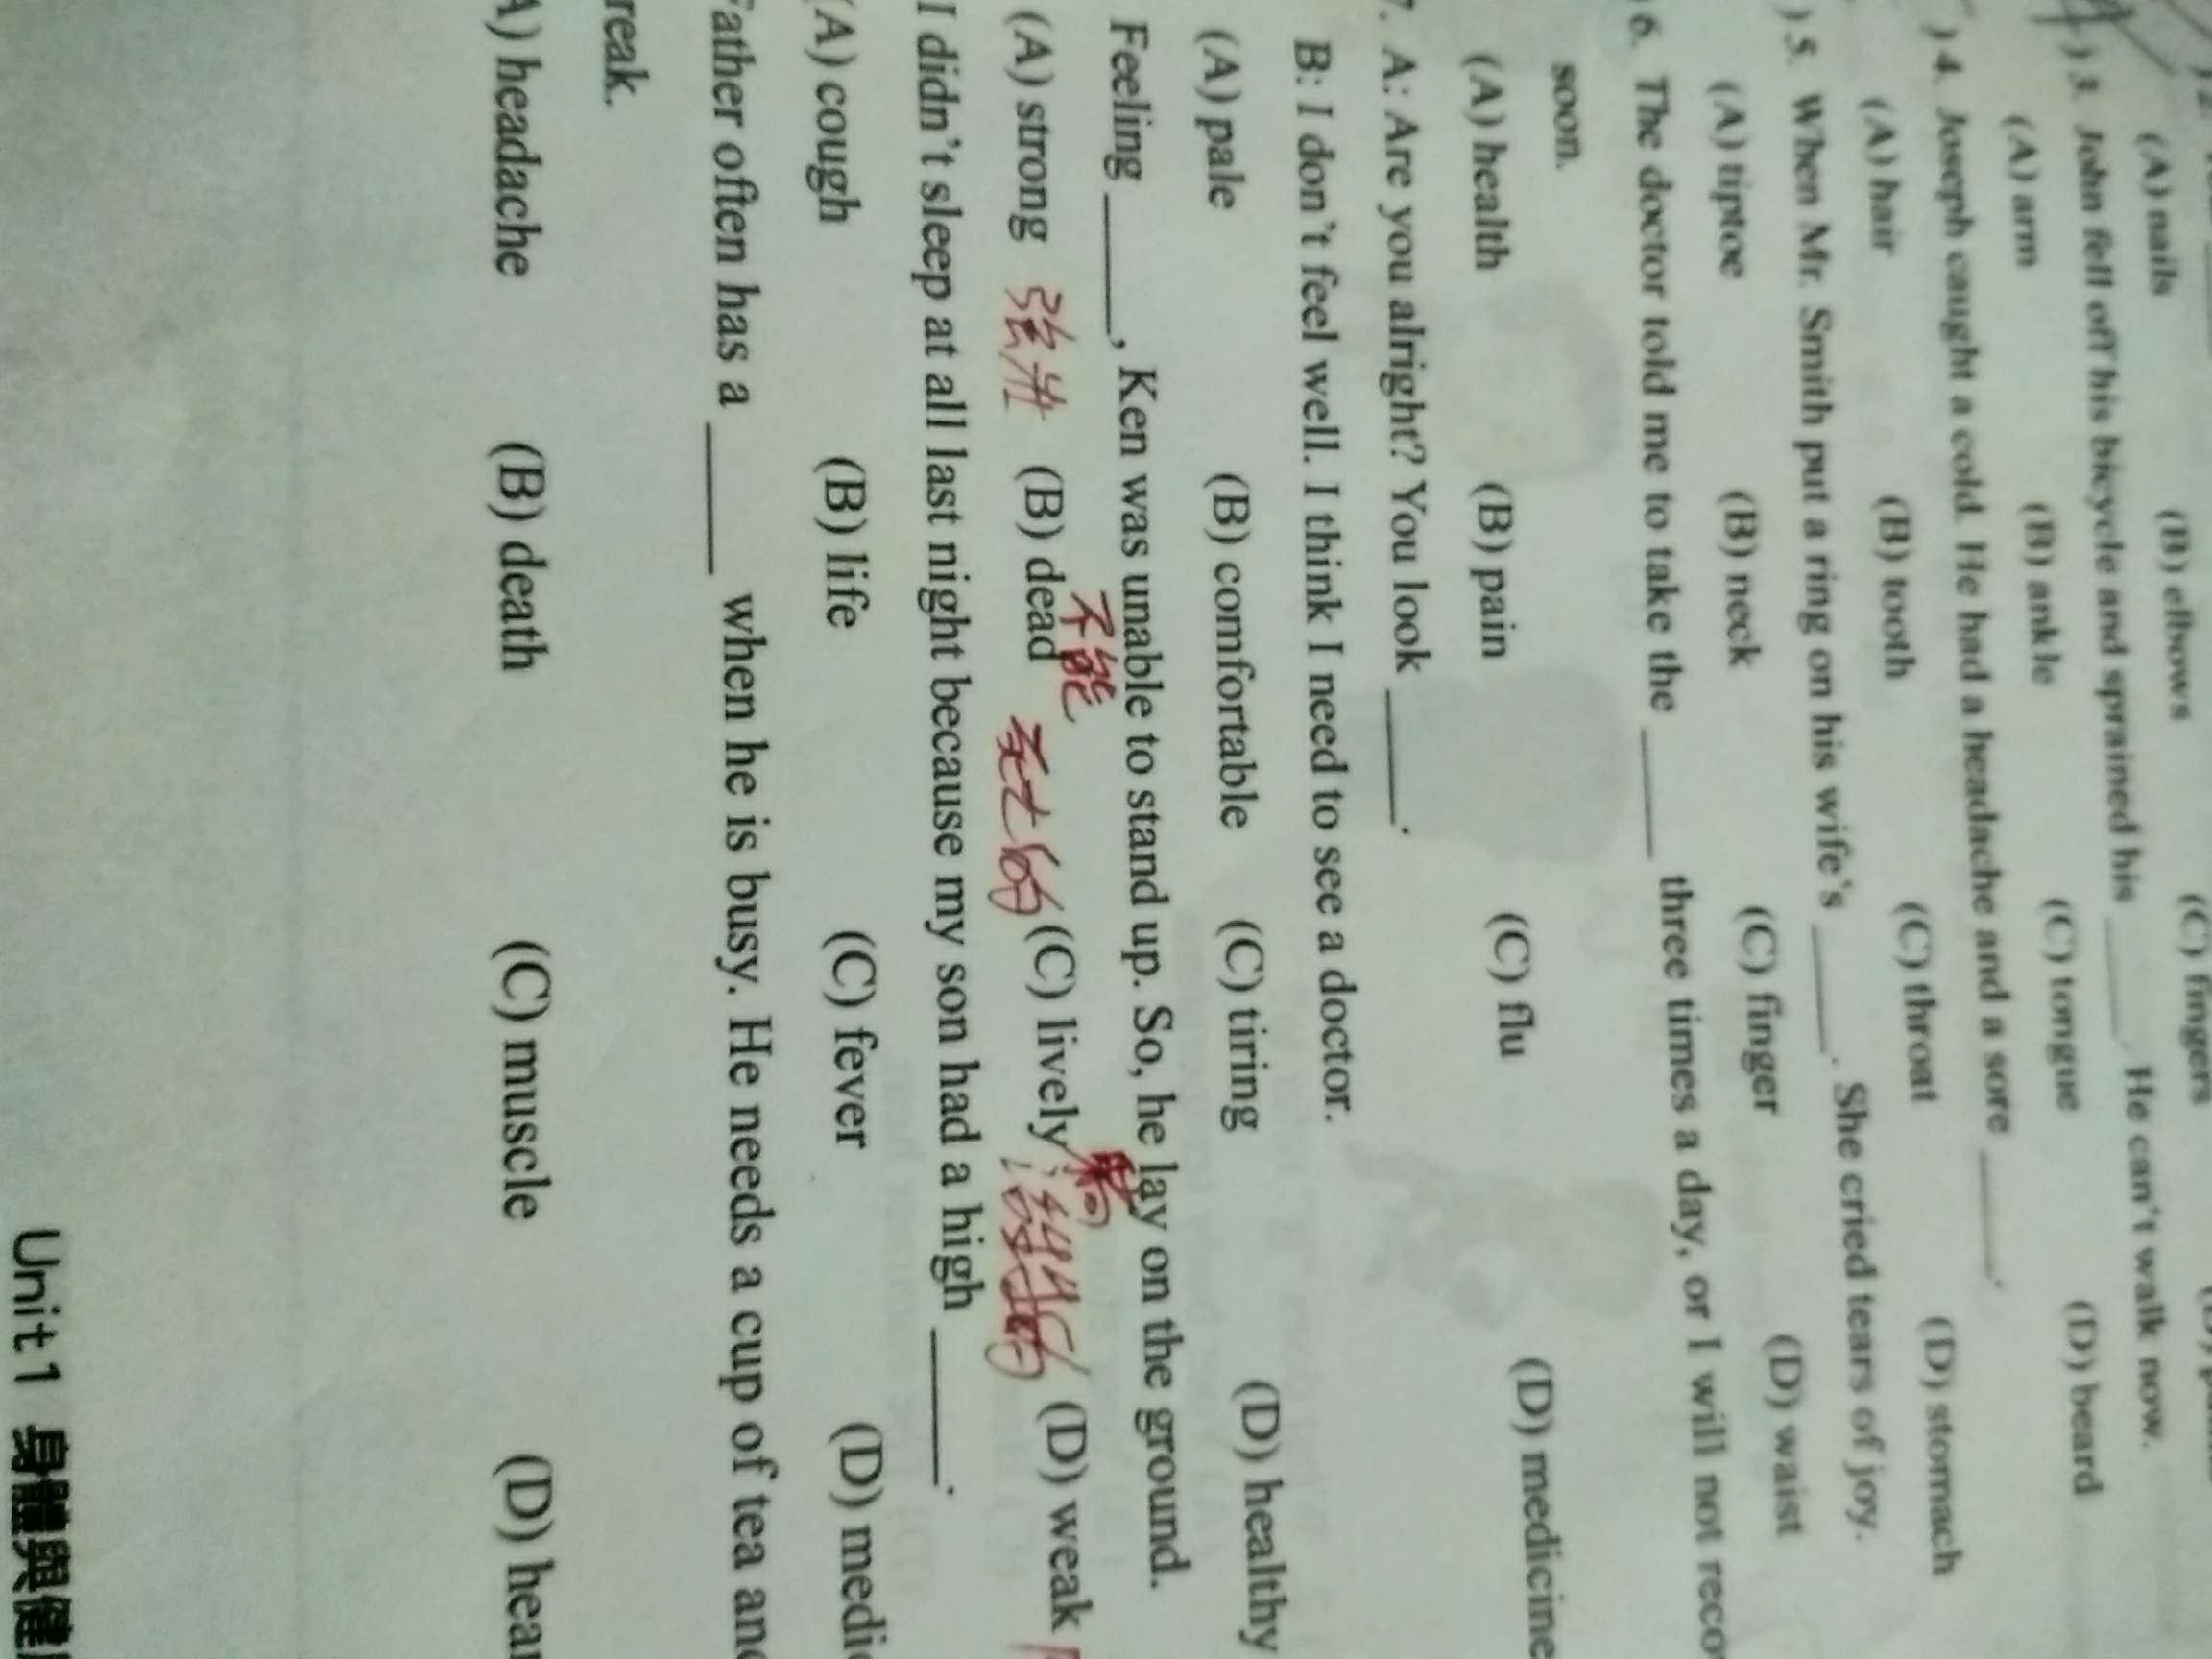 (A) nails (B) elbows (C) fingers
) 3. John fell off his bicycle and sprained his _____. He can't walk now.
(A) arm (B) ankle (C) tongue (D) beard
) 4. Joseph caught a cold. He had a headache and a sore _____.
(A) hair (B) tooth (C) throat (D) stomach
) 5. When Mr. Smith put a ring on his wife's _____. She cried tears of joy.
(A) tiptoe (B) neck (C) finger (D) waist
) 6. The doctor told me to take the _____ three times a day, or I will not reco
soon.
(A) health (B) pain (C) flu (D) medicine
7. A: Are you alright? You look _____.
B: I don't feel well. I think I need to see a doctor.
(A) pale (B) comfortable (C) tiring (D) healthy
Feeling _____, Ken was unable to stand up. So, he lay on the ground.
不能
(A) strong 強壯 (B) dead 死亡的 (C) lively (D) weak
I didn't sleep at all last night because my son had a high _____.
(A) cough (B) life (C) fever (D) medi
Father often has a _____ when he is busy. He needs a cup of tea and
reak.
A) headache (B) death (C) muscle (D) hear
Unit 1 身體與健